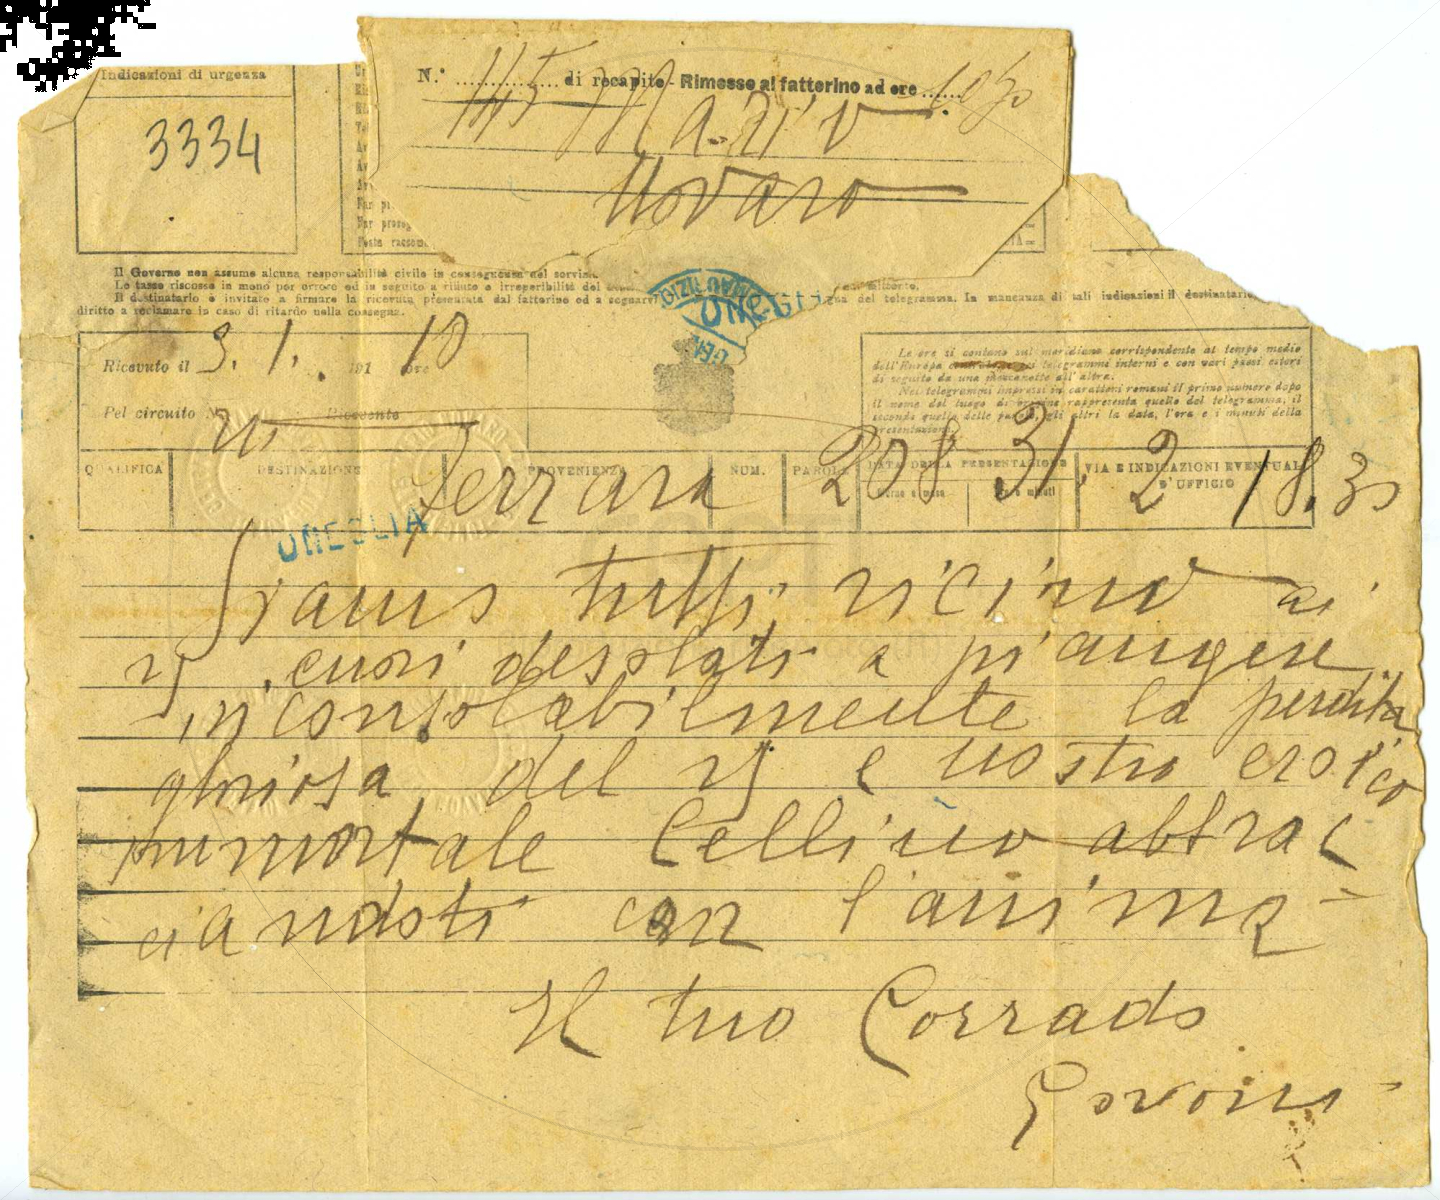 N.° 145 di recapito - Rimesso al fattorino ad ore 10.30
Mario
Novaro
Indicazioni di urgenza
3334
Il Governo non assume alcuna responsabilità civile in conseguenza del servizio
Le tasse riscosse in meno per errore ed in seguito a rifiuto e irreperibilità del
Il destinatario è invitato a firmare la ricevuta presentata dal fattorino ed a segnarvi
del telegramma. In mancanza di tali indicazioni il destinatario
diritto a reclamare in caso di ritardo nella consegna.
Ricevuto il 3. 1. 191 ore 10
Pel circuito N. Ricevente
Le ore si contano sul meridiano corrispondente al tempo medio
dell'Europa telegrammi interni e con vari paesi esteri
di seguito da una mezzanotte all'altra.
Nei telegrammi impressi in caratteri romani il primo numero dopo
il nome del luogo di origine rappresenta quello del telegramma, il
secondo quello delle parole, gli altri la data, l'ora e i minuti della
presentazione.
QUALIFICA DESTINAZIONE PROVENIENZA NUM. PAROLE DATA DELLA PRESENTAZIONE VIA E INDICAZIONI EVENTUALI D'UFFICIO
Ferrara 208 31 2 18.30
ONEGLIA
Siamo tutti vicino ai
vs cuori desolati a piangere
inconsolabilmente la perdita
gloriosa del vs e nostro eroico
immortale Cellino abbrac
ciandoti con l'anima =
Il tuo Corrado
Govoni